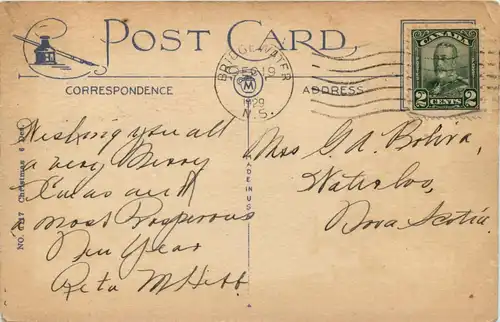 POST CARD
CORRESPONDENCE
ADDRESS
BRIDGEWATER
DEC 19
M
1929
N.S.
CANADA
2 CENTS 2
Wishing you all
a very Merry
Xmas and
a most Prosperous
New Year
Reta M Hebb
Mrs G. A. Boliva,
Waterloo,
Nova Scotia.
MADE IN U.S.A.
NO. 6217 Christmas 6 Des.